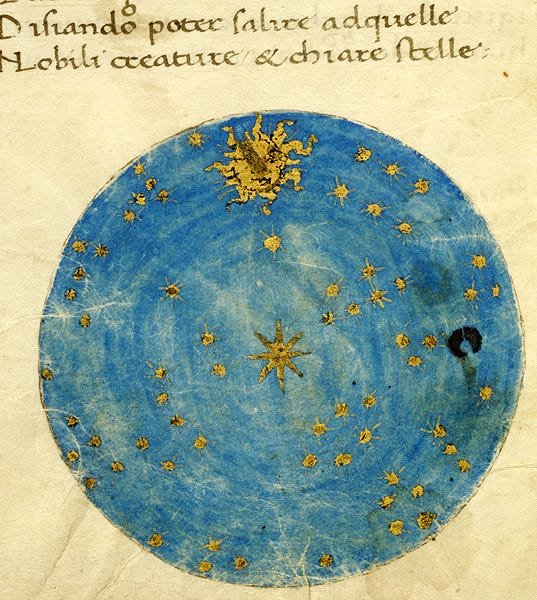 Disiando poter salire adquelle
Nobili creature / & chiare stelle: